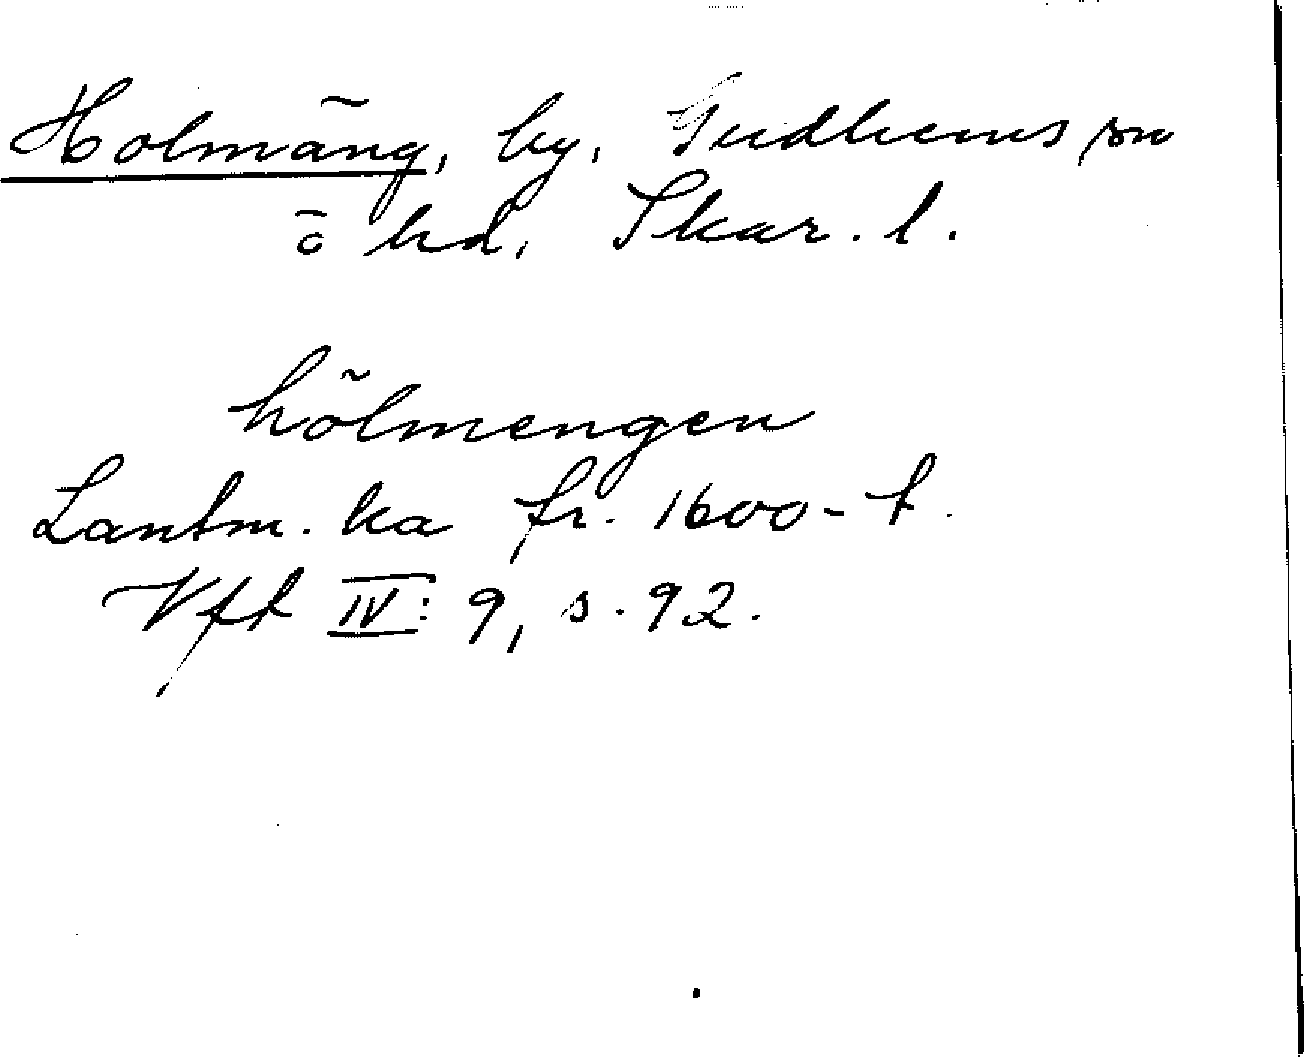 Holmäng, by, Gudhems sn
ö hd, Skar. l.
hölmengen
Lantm. ka fr. 1600-t.
Vft IV: 9, s. 92.